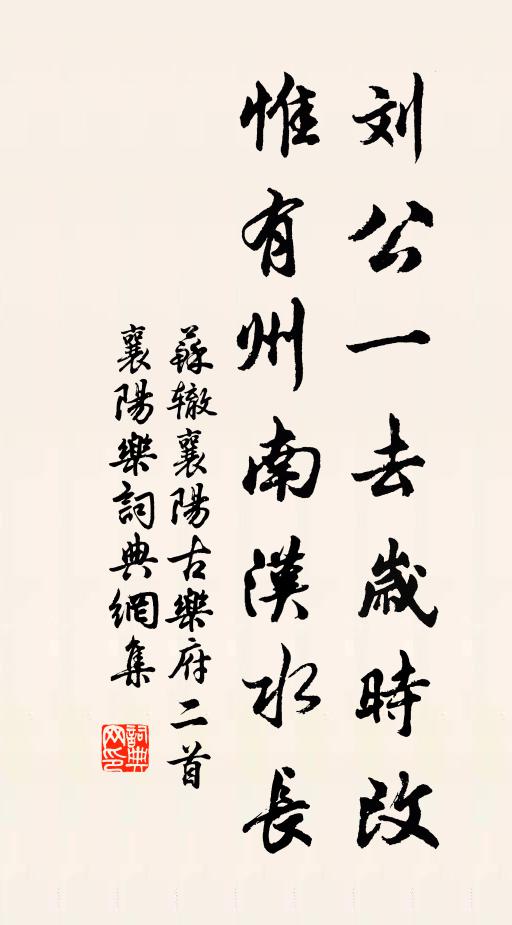 刘公一去歲時改
惟有州南漢水長
蘇辙襄陽古樂府二首
襄陽樂詞典網集
詞典网印